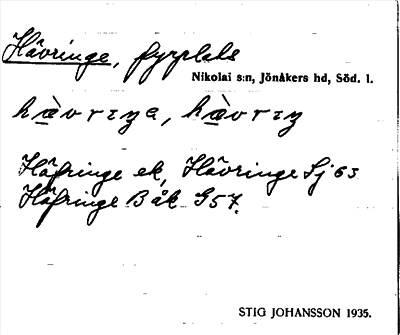 Hävringe, fyrplats
Nikolai s:n, Jönåkers hd, Söd. l.
hæ̀vrıŋa, hæ̀vrıŋ
Häfringe ek, Hävringe Sj 63
Häfringe B åk G57.
STIG JOHANSSON 1935.